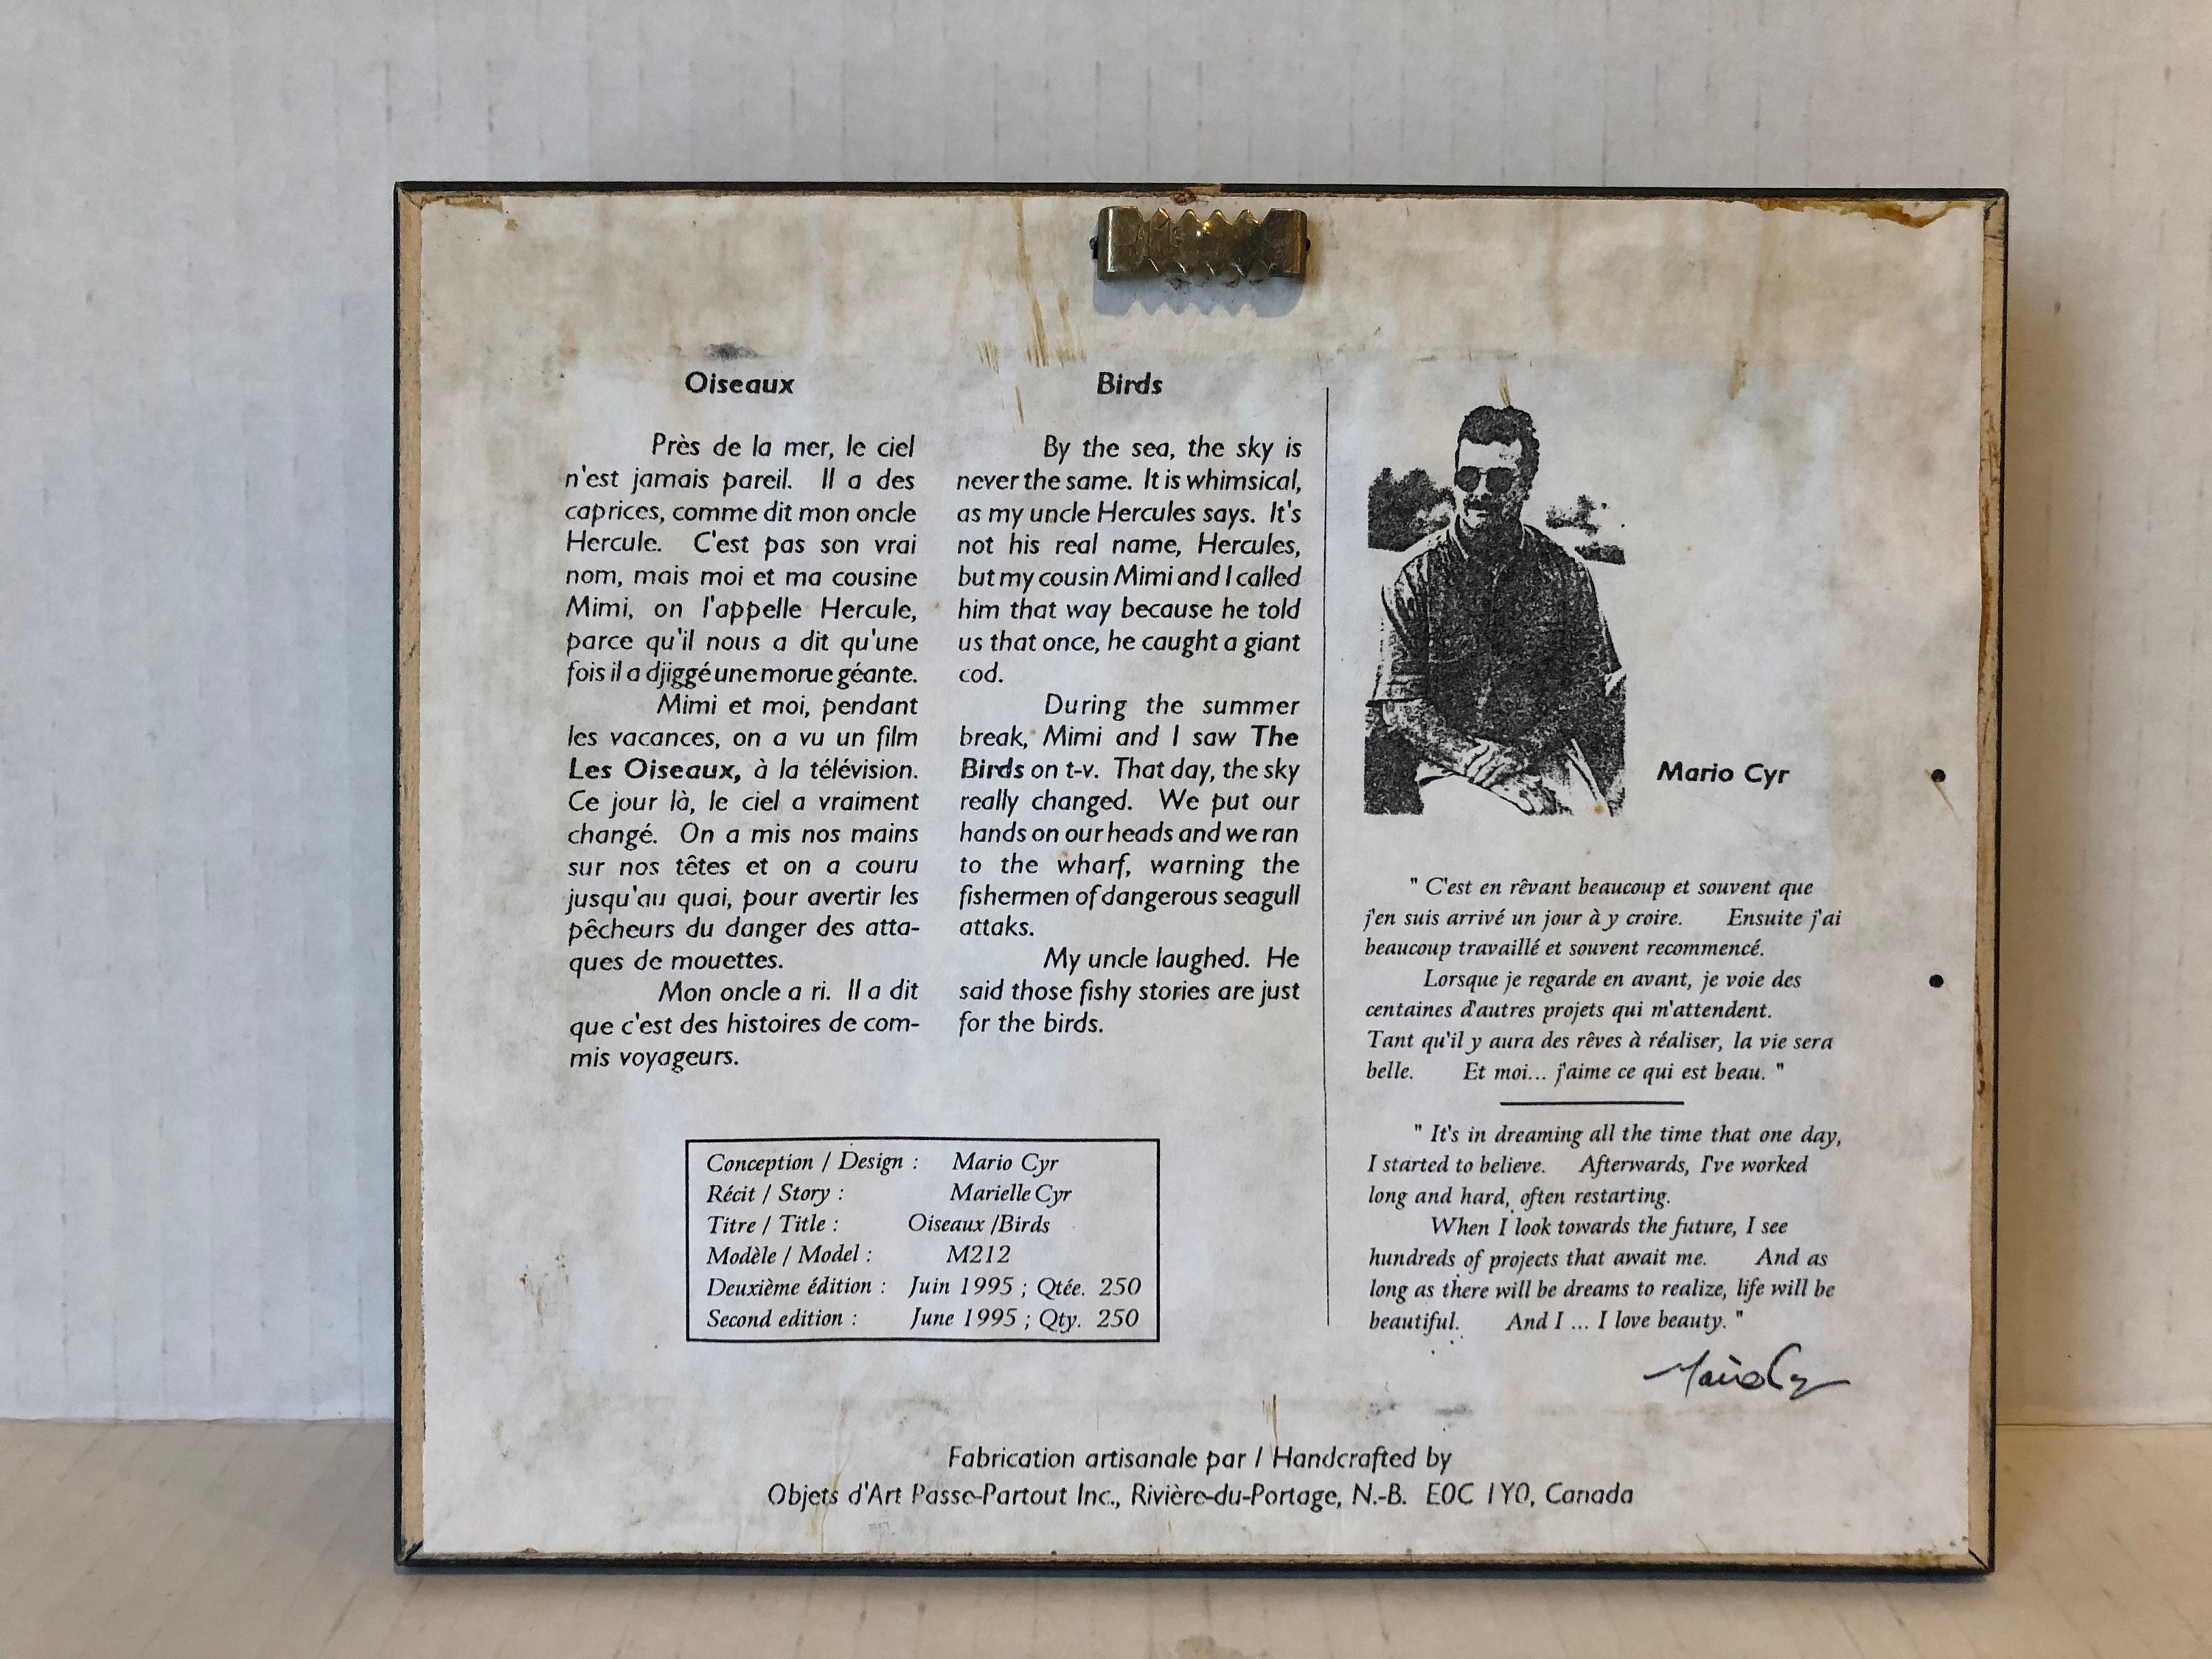 Oiseaux
Près de la mer, le ciel
n'est jamais pareil. Il a des
caprices, comme dit mon oncle
Hercule. C'est pas son vrai
nom, mais moi et ma cousine
Mimi, on l'appelle Hercule,
parce qu'il nous a dit qu'une
fois il a djiggé une morue géante.
Mimi et moi, pendant
les vacances, on a vu un film
Les Oiseaux, à la télévision.
Ce jour là, le ciel a vraiment
changé. On a mis nos mains
sur nos têtes et on a couru
jusqu'au quai, pour avertir les
pêcheurs du danger des atta-
ques de mouettes.
Mon oncle a ri. Il a dit
que c'est des histoires de com-
mis voyageurs.
Birds
By the sea, the sky is
never the same. It is whimsical,
as my uncle Hercules says. It's
not his real name, Hercules,
but my cousin Mimi and I called
him that way because he told
us that once, he caught a giant
cod.
During the summer
break, Mimi and I saw The
Birds on t-v. That day, the sky
really changed. We put our
hands on our heads and we ran
to the wharf, warning the
fishermen of dangerous seagull
attaks.
My uncle laughed. He
said those fishy stories are just
for the birds.
Conception / Design : Mario Cyr
Récit / Story : Marielle Cyr
Titre / Title : Oiseaux /Birds
Modèle / Model : M212
Deuxième édition : Juin 1995 ; Qtée. 250
Second edition : June 1995 ; Qty. 250
Mario Cyr
" C'est en rêvant beaucoup et souvent que
j'en suis arrivé un jour à y croire. Ensuite j'ai
beaucoup travaillé et souvent recommencé.
Lorsque je regarde en avant, je voie des
centaines d'autres projets qui m'attendent.
Tant qu'il y aura des rêves à réaliser, la vie sera
belle. Et moi... j'aime ce qui est beau. "
" It's in dreaming all the time that one day,
I started to believe. Afterwards, I've worked
long and hard, often restarting.
When I look towards the future, I see
hundreds of projects that await me. And as
long as there will be dreams to realize, life will be
beautiful. And I ... I love beauty. "
Mario Cyr
Fabrication artisanale par / Handcrafted by
Objets d'Art Passe-Partout Inc., Rivière-du-Portage, N.-B. E0C 1Y0, Canada